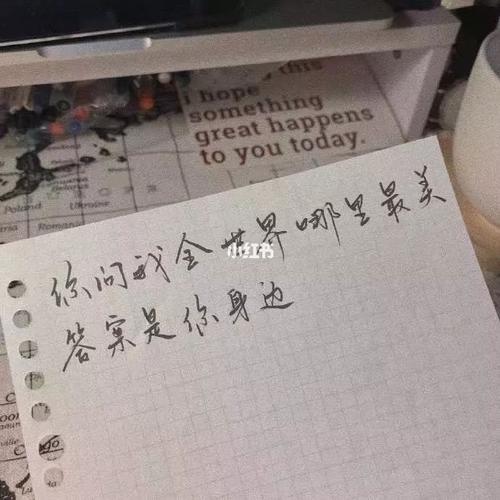 this
i hope
something
great happens
to you today.
Poland
Ukraine
Romania
你问我全世界哪里最美
小红书
答案是你身边